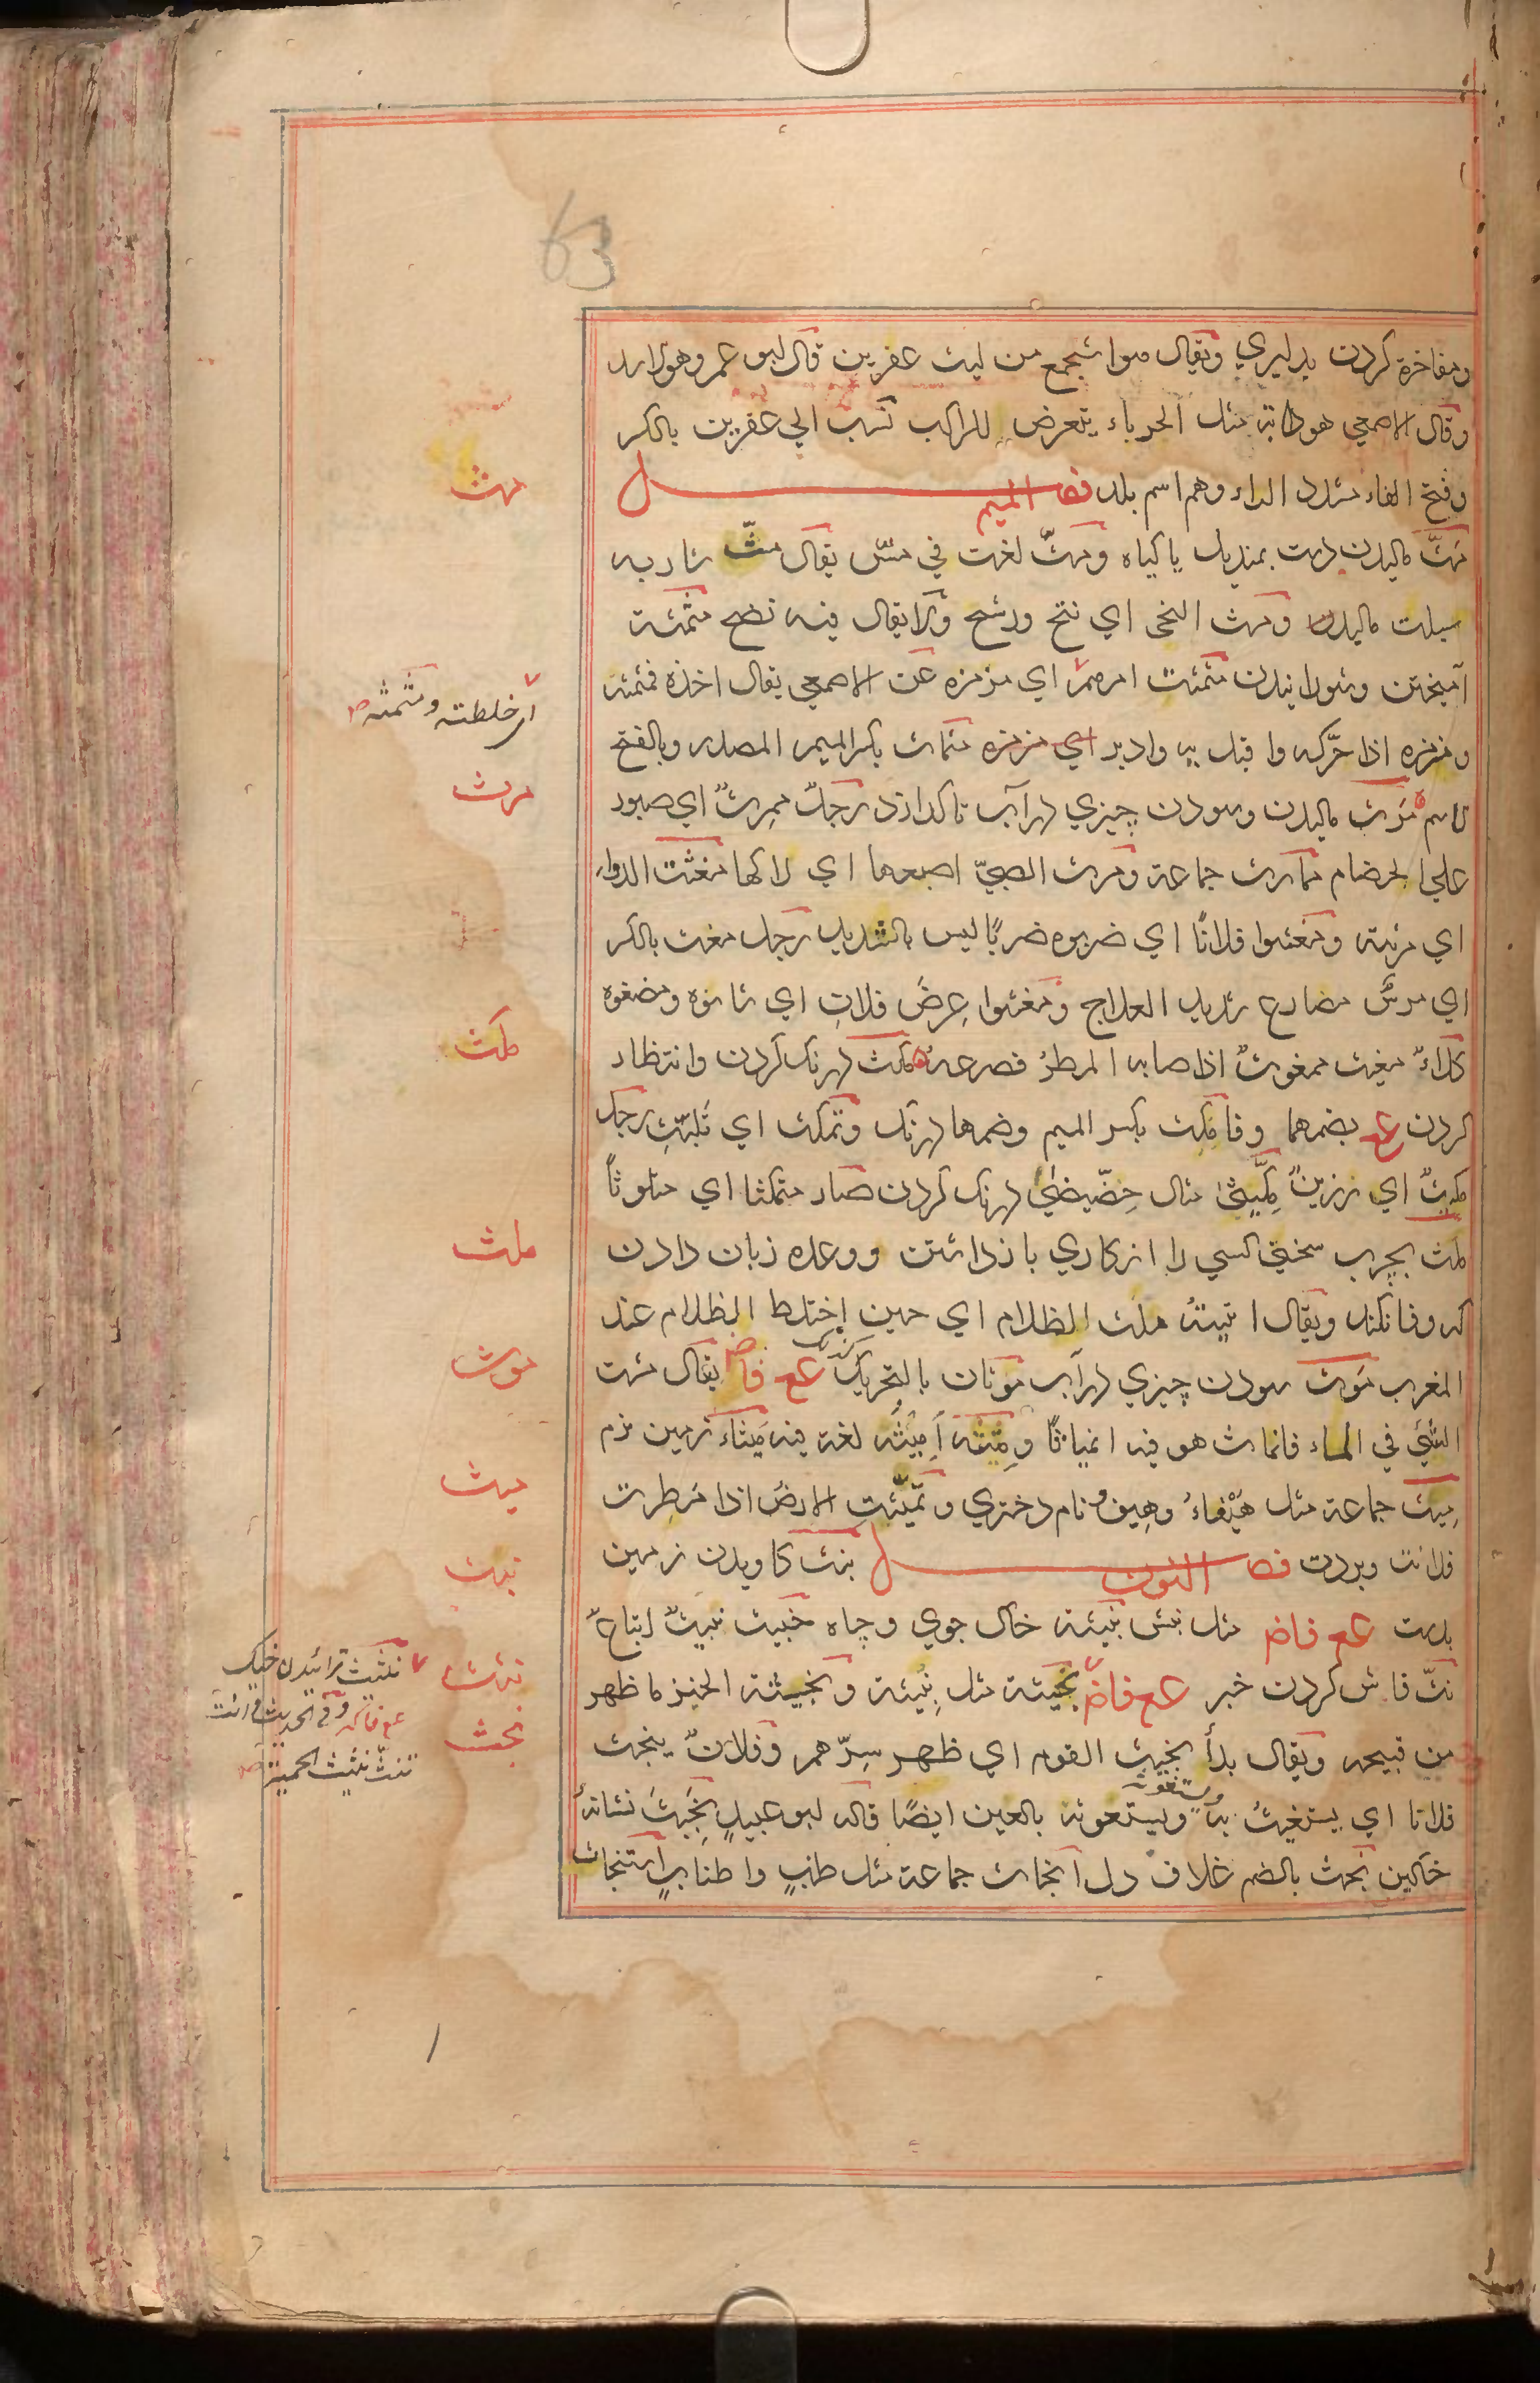 63
ومفاخرة كردن بدليري ويقال هوا شجع من ليث عفرين قال ابو عمرو هو الاسد
وقال الاصمعي هو دابة مثل الحرباء يتعرض للراكب نسب الي عفرين بالكسر
وفتح الفاء مشدد الراء وهم اسم بلد فصل الميم
مثّ ماليدن دست بمنديل يا كياه ومثّ لغت في مشّ يقال مثّ شاربه
سبلت ماليدن ومث النحى اي نتح ورشح ولا يقال فيه نضح مثمثة
آميختن وشورانيدن مثمثت امرهم اي مزمزه عن الاصمعي يقال اخذه فمثمثه
ومزمزه اذا حرّكه واقبل به وادبر اي مزمزه مثماث بكسر الميم المصدر وبالفتح
الاسم مرث ماليدن وسودن چيزي در آب تا كدازد رجل ممرث اي صبور
علي الخصام ممارث جماعة ومرث الصبيّ اصبعها اي لاكها مغثت الدواء
اي مرثته ومغثوا فلانًا اي ضربوه ضربًا ليس بالشديد رجل مغث بالكسر
اي مرسٌ مصارع شديد العلاج ومغثوا عِرضَ فلان اي شانوه ومضغوه
كلاءٌ مغيث ممغوث اذا صابه المطرُ فصرعه مكث درنك كردن وانتظار
كردن عع بضمهما وفا مكث بكسر الميم وضمها درنك وتمكث اي تلبّث رجل
مكيث اي رزين مِكّيثى مثال خِصّيصى درنك كردن صار متمكثا اي متلوثًا
ملث بچرب سخني كسي را از كاري باز داشتن ووعده زبان دادن
كه وفا نكند ويقال اتيته ملث الظلام اي حين اختلط الظلام عند
المغرب موث سودن چيزي در آب موثان بالتحريك عع فا يقال مثت
الشئ في الماء فانماث هو فيه انمياثًا ومِثته اَميثه لغة فيه ميثاء زمين نرم
مِيث جماعة مثل هَيْفاءُ وهِيف ونام دختري وتميّثت الارض اذا مُطرت
فلانت وبردت فصل النون نبث كاويدن زمين
بدست عع فاض مثل نبش نبيثة خاك جوي وچاه خبيث نبيث اتباع
نثّ فاش كردن خبر عع فاض نجيثة مثل نبيثة ونجيثة الخبر ما ظهر
من قبيحه ويقال بدأ نجيث القوم اي ظهر سِرّهم وفلان ينجث
فلانا اي يستغيث به ويستعونه بالعين ايضًا قاله ابو عبيد نجيث نشانهٔ
خاكين نجث بالضم غلاف دل انجاث جماعة مثل طنب واطناب استنجاث
ويستغوثه
مثث
اي خلطته ومثمثه
مرث
مكث
ملث
موث
ميث
نبث
نثث
نجث
نثيث ترائيدن خيك
عع فاكه وفي الحديث وانت
تنث نثيث الحميت